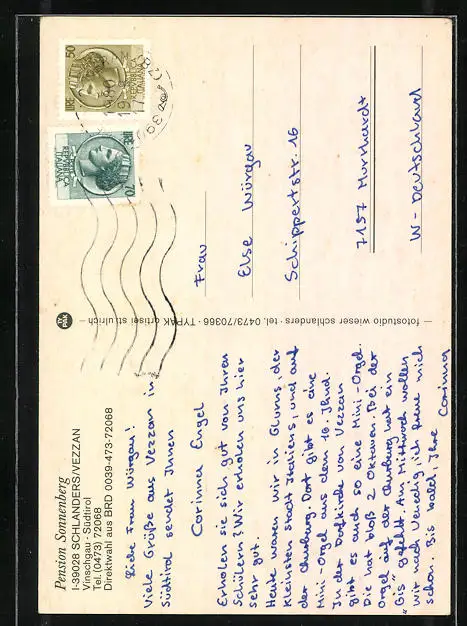 Pension Sonnenberg
I-39028 SCHLANDERS/VEZZAN
Vinschgau · Südtirol
Tel. (0473) 72068
Direktwahl aus BRD 0039-473-72068
Liebe Frau Würgau!
Viele Grüße aus Vezzan in
Südtirol sendet Ihnen
Corinna Engel
Erholen sie sich gut von Ihren
Schülern? Wir erholen uns hier
sehr gut.
Heute waren wir in Glurns, der
kleinsten Stadt Italiens, und auf
der Churburg. Dort gibt es eine
Mini-Orgel aus dem 16. Jhnd.
In der Dorfkirche von Vezzan
gibt es auch so eine Mini-Orgel.
Die hat bloß 2 Oktaven. Bei der
Orgel auf der Churburg hat ein
"Gis" gefehlt. Am Mittwoch wollen
wir nach Venedig, ich freue mich
schon. Bis bald, Ihre Corinna
TYPAK
fotostudio wieser schlanders · tel. 0473/70366 · TYPAK ortisei st. ulrich
LIRE 50
REPUBBLICA
ITALIANA
LIRE 70
REPUBBLICA
ITALIANA
Frau
Else Würgau
Schippertstr. 16
7157 Murrhardt
W-Deutschland